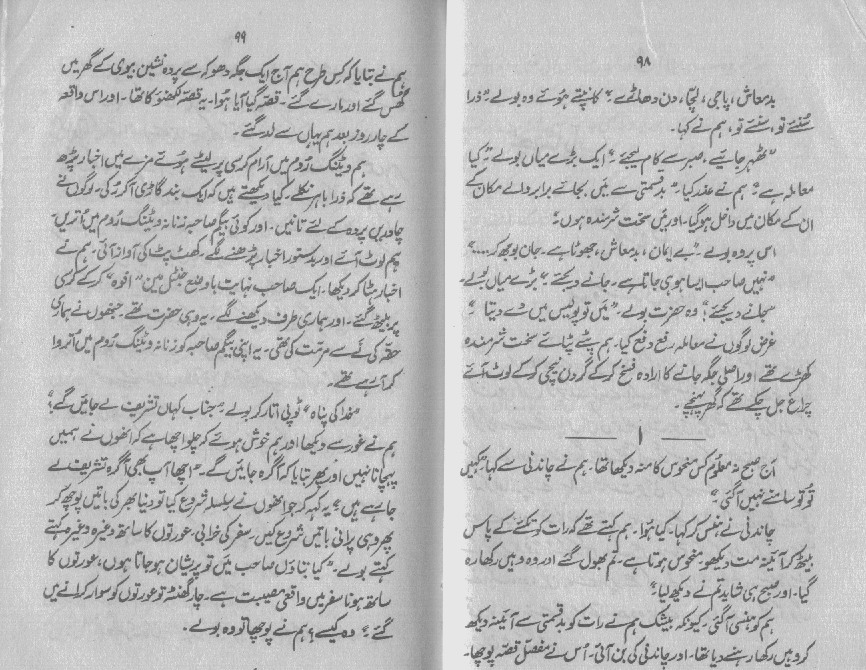 ۹۸
بدمعاش، پاجی، لُچّا، دن دھاڑے۔" کانپتے ہوئے وہ بولے۔ "ذرا
سُنئے تو، سنئے تو، ہم نے کہا۔
"ٹھہر جائیے، صبر سے کام لیجئے۔" ایک بڑے میاں بولے۔ "کیا
معاملہ ہے۔" ہم نے عذر کیا۔ "بدقسمتی سے میں بجائے برابر والے مکان کے
ان کے مکان میں داخل ہو گیا۔ اور میں سخت شرمندہ ہوں۔"
اس پر وہ بولے۔ "بے ایمان، بدمعاش، جھوٹا ہے۔ جان بوجھ کر....."
"نہیں صاحب ایسا ہو ہی جاتا ہے۔ جانے دیجئے۔" بڑے میاں بولے۔
"جانے دیجئے؟" وہ حضرت بولے۔ "میں تو پولیس میں دے دیتا۔"
غرض لوگوں نے معاملہ رفع دفع کیا۔ ہم پٹے پٹائے سخت شرمندہ
کھڑے تھے اور اصلی جگہ جانے کا ارادہ فسخ کر کے گردن نیچی کر کے لوٹ آئے
چراغ جل چکے تھے کہ گھر پہنچے۔
ا
آج صبح نہ معلوم کس منحوس کا منہ دیکھا تھا۔ ہم نے چاندنی سے کہا۔ "کہیں
تُو تو سامنے نہیں آ گئی۔"
چاندنی نے ہنس کر کہا۔ کیا ہُوا۔ ہم کہتے تھے کہ رات کو تکئے کے پاس
بیٹھ کر آئینہ مت دیکھو، منحوس ہوتا ہے۔ تم بھول گئے اور وہ وہیں رکھا رہ
گیا۔ اور صبح ہی شاید تم نے دیکھ لیا۔"
ہم کو ہنسی آ گئی۔ کیونکہ بیشک ہم نے رات کو بدقسمتی سے آئینہ دیکھ
کر وہیں رکھا رہنے دیا تھا۔ اور چاندنی کی بن آئی۔ اُس نے مفصّل قصّہ پوچھا۔
۹۹
ہم نے بتایا کہ کس طرح ہم آج ایک جگہ دھوکہ سے پردہ نشین بیوی کے گھر میں
گھس گئے اور مارے گئے۔ قصّہ گیا آیا ہُوا۔ یہ قصّہ لکھنؤ کا تھا۔ اور اس واقعہ
کے چار روز بعد ہم یہاں سے لد گئے۔
ہم ویٹنگ رُوم میں آرام کرسی پر لیٹے ہوئے مزے میں اخبار پڑھ
رہے تھے کہ ذرا باہر نکلے۔ کیا دیکھتے ہیں کہ ایک بند گاڑی آ کر رکی۔ لوگوں نے
چادریں پردہ کے لئے تانیں۔ اور کوئی بیگم صاحبہ زنانہ ویٹنگ رُوم میں اُتریں۔
ہم لوٹ آئے اور بدستور اخبار پڑھنے لگے۔ کھٹ پٹ کی آواز آئی۔ ہم نے
اخبار ہٹا کر دیکھا۔ ایک صاحب نہایت باوضع جنٹل مین "افوہ" کر کے کرسی
پر بیٹھ گئے۔ اور ہماری طرف دیکھنے لگے۔ یہ وہی حضرت تھے۔ جنھوں نے ہماری
حقہ کی نَے سے مرمت کی تھی۔ یہ اپنی بیگم صاحبہ کو زنانہ ویٹنگ رُوم میں اُتروا
کر آ رہے تھے۔
"خدا کی پناہ" ٹوپی اتار کر بولے۔ "جناب کہاں تشریف لے جائیں گے؟"
ہم نے غور سے دیکھا اور ہم خوش ہوئے کہ چلو اچھا ہے کہ انھوں نے ہمیں
پہچانا نہیں اور پھر بتایا کہ آگرہ جائیں گے۔ "اچھا آپ بھی آگرہ تشریف لے
جا رہے ہیں؟" یہ کہہ کر جو انھوں نے سلسلہ شروع کیا تو دنیا بھر کی باتیں پوچھ کر
پھر وہی پرانی باتیں شروع کیں۔ سفر کی خرابی۔ عورتوں کا ساتھ وغیرہ وغیرہ کہتے
کہتے بولے۔ "کیا بتاؤں صاحب میں تو پریشان ہو جاتا ہوں، عورتوں کا
ساتھ ہونا سفر میں واقعی مصیبت ہے۔ چار گھنٹہ تو عورتوں کو سوار کرانے میں
گئے۔" "وہ کیسے؟" ہم نے پوچھا تو وہ بولے۔